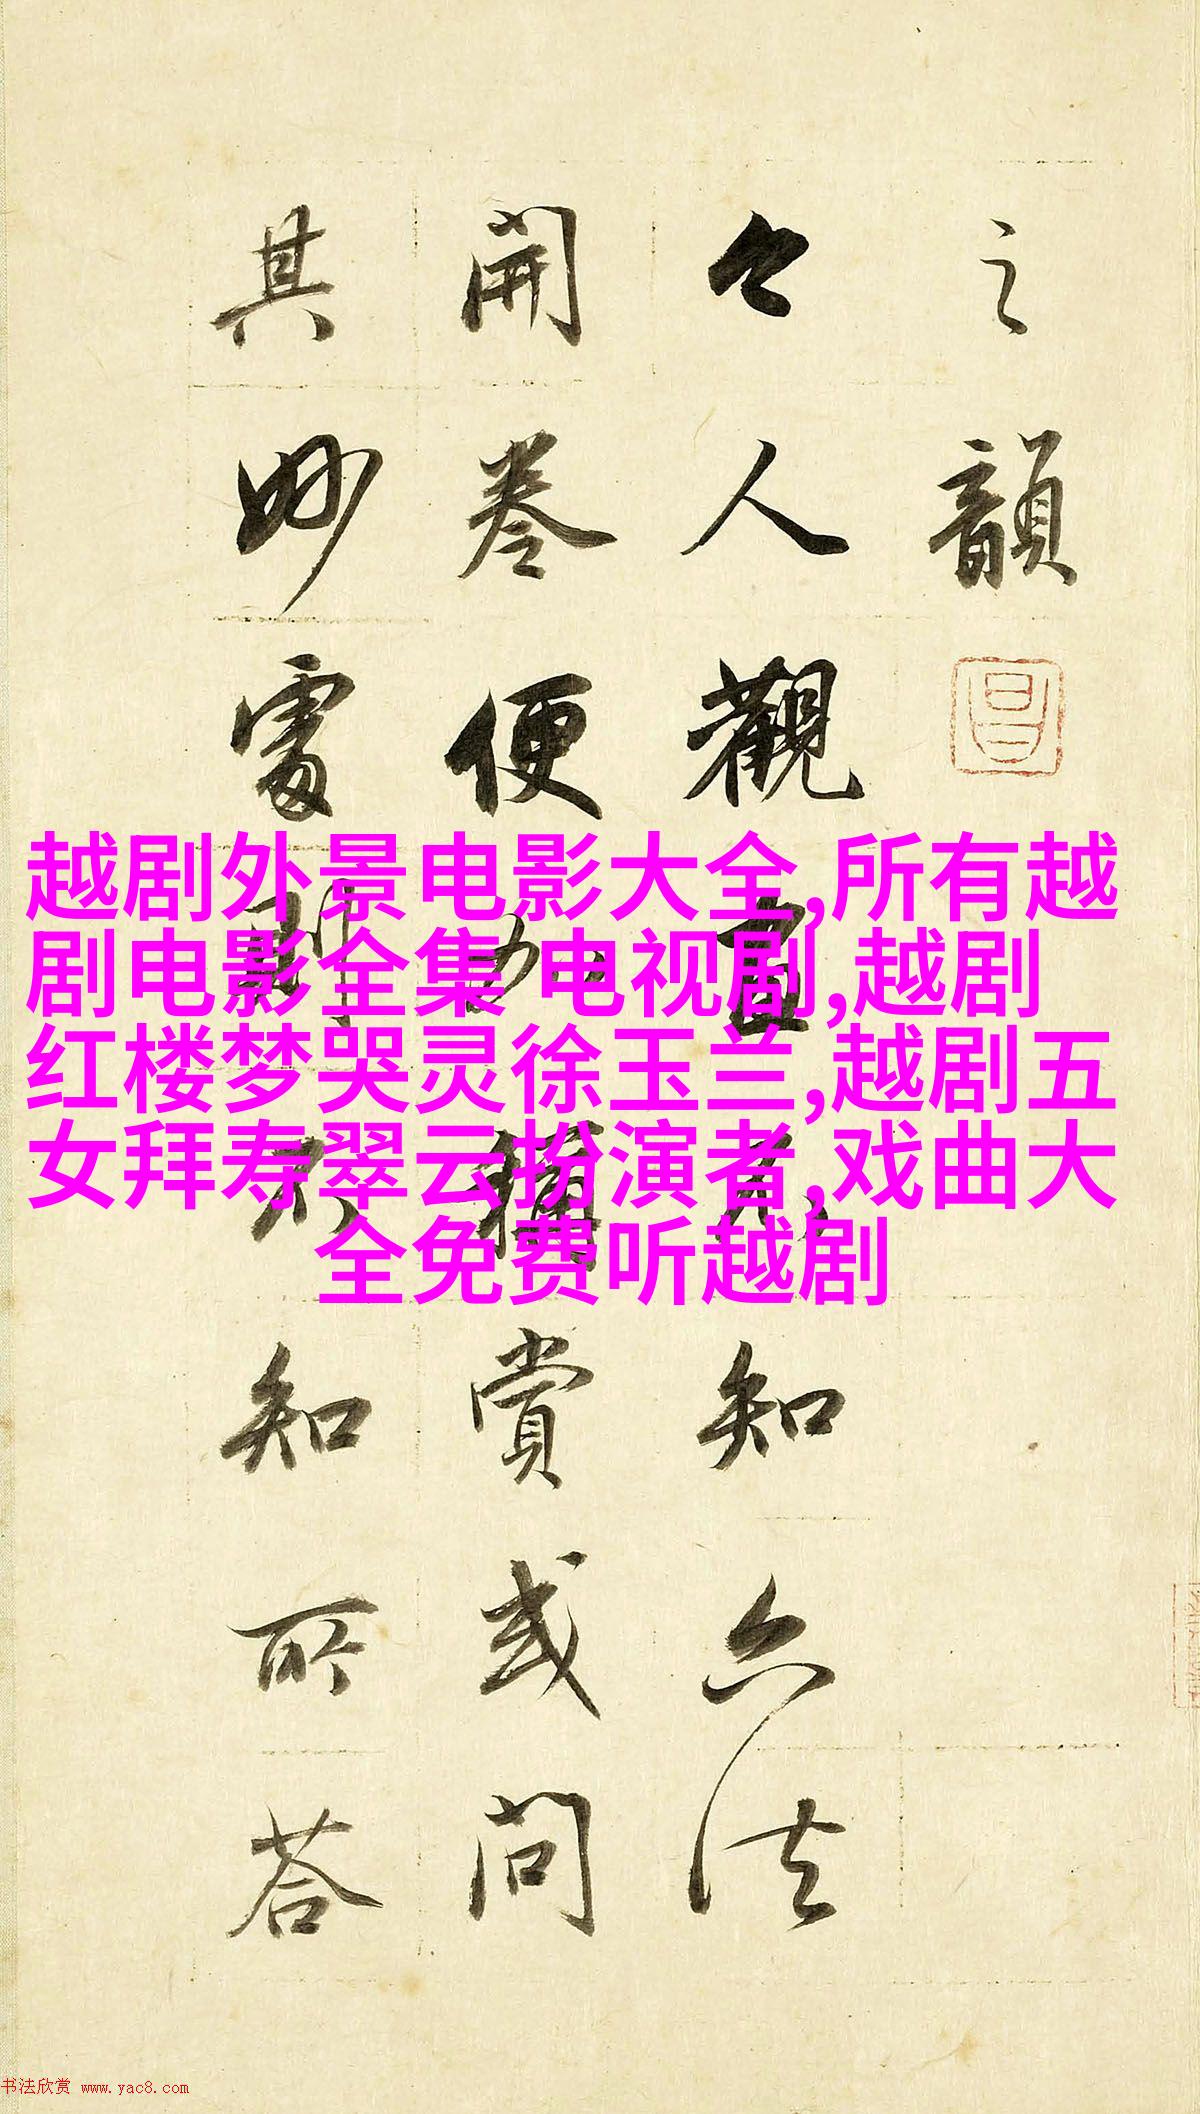 之韻
今人觀畫不知六法
開卷便加稱賞或問
其妙處則不知所答
越剧外景电影大全,所有越
剧电影全集 电视剧,越剧
红楼梦哭灵徐玉兰,越剧五
女拜寿翠云扮演者,戏曲大
全免费听越剧
书法欣赏 www.yac8.com